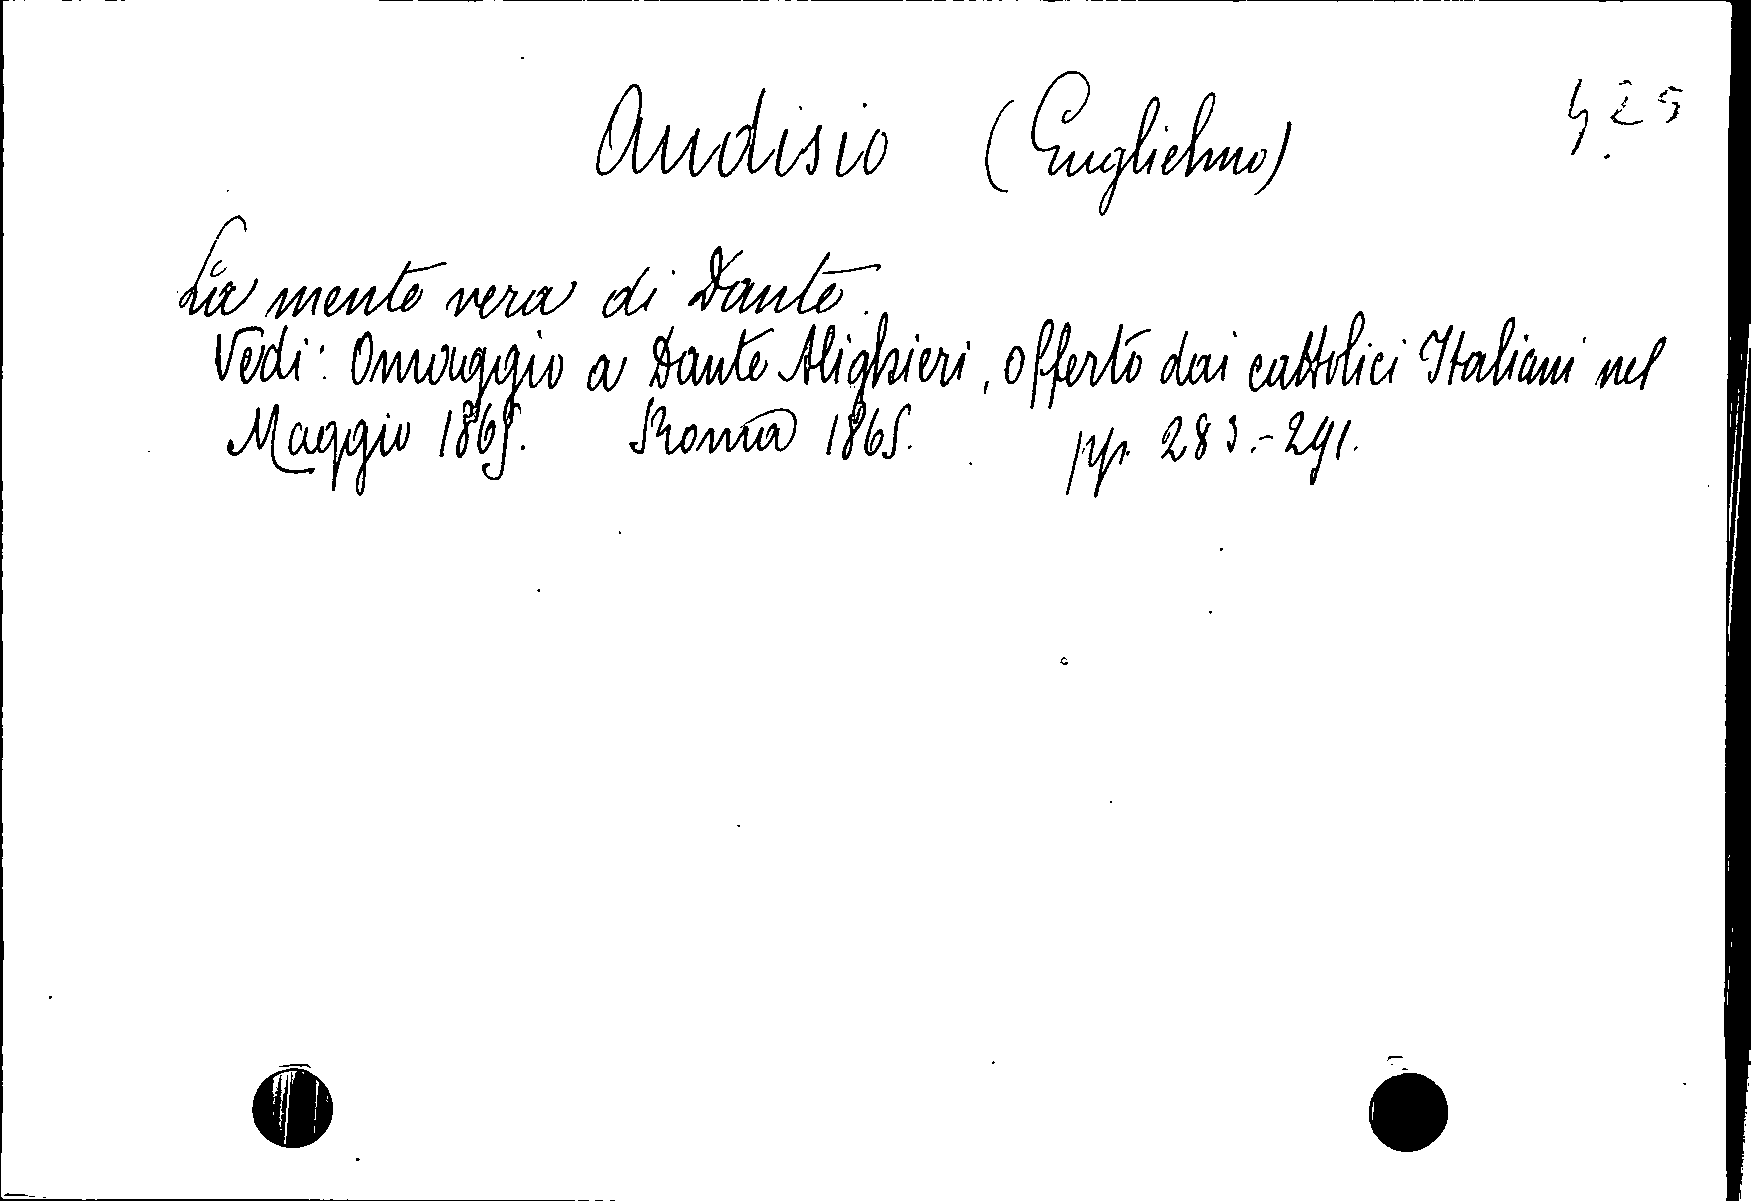 Audisio (Guglielmo)
La mente vera di Dante.
Vedi: Omaggio a Dante Alighieri, offerto dai cattolici Italiani nel
Maggio 1865. Roma 1865. pp. 283.-291.